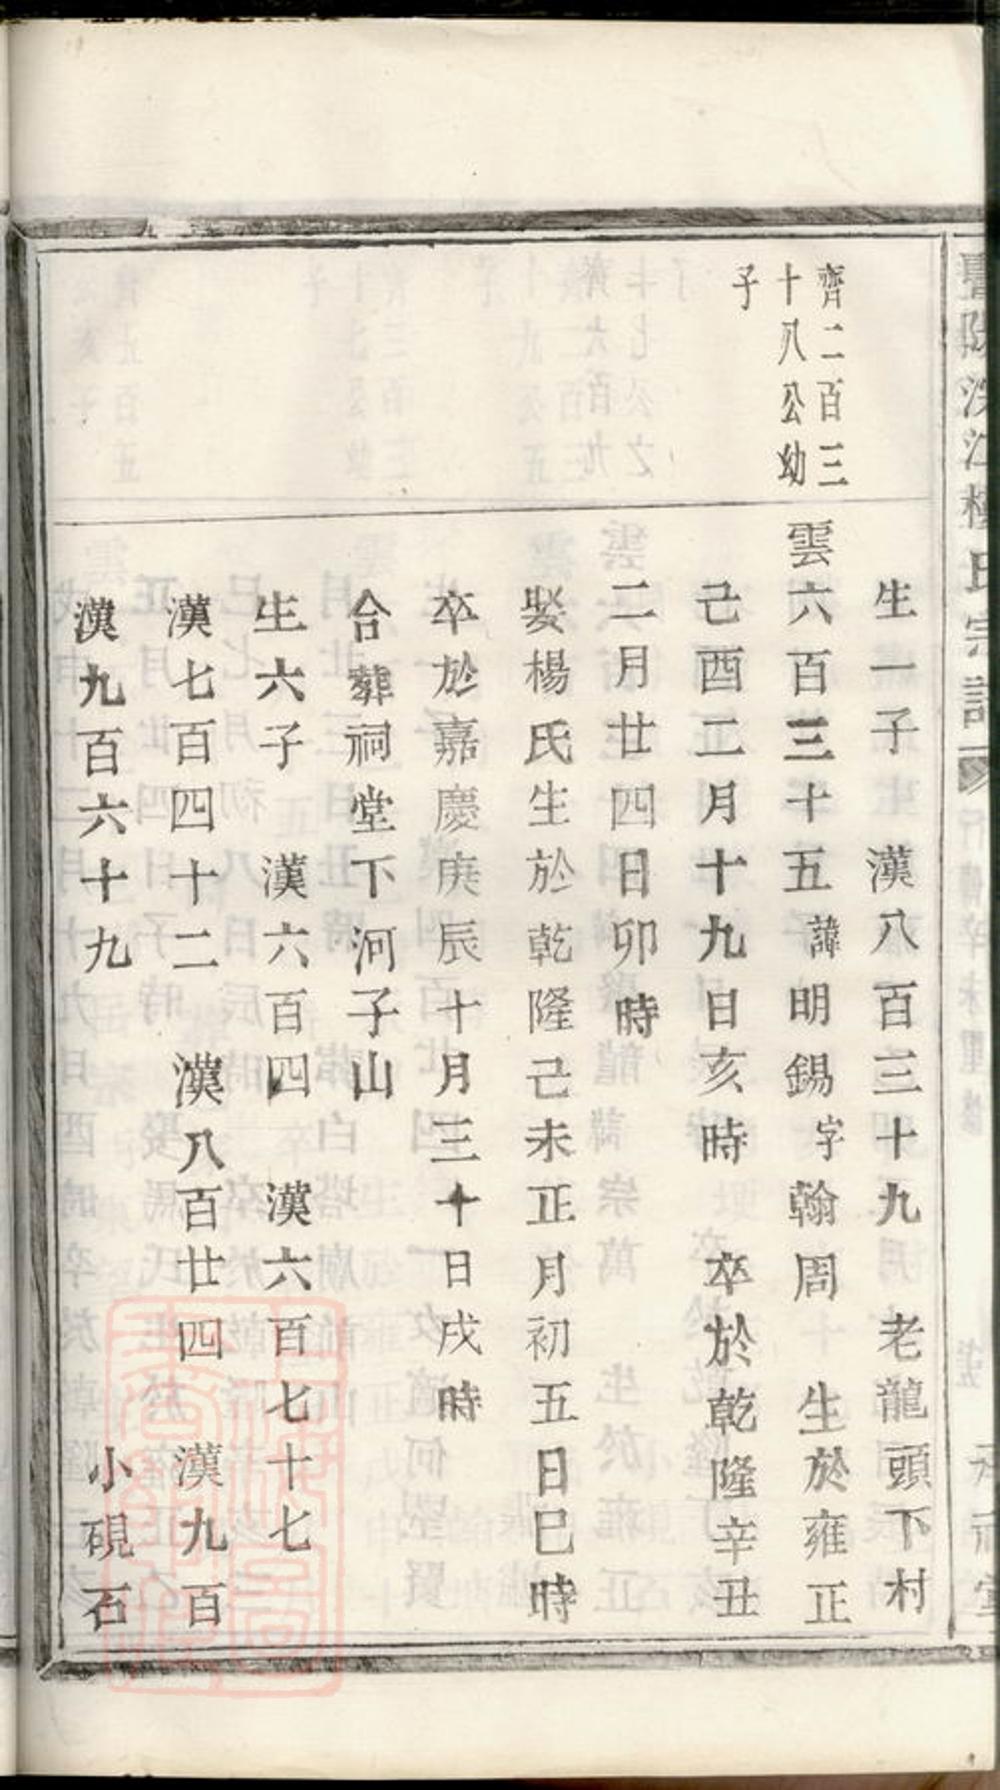 齊二百三
十八公幼
子
生一子　漢八百三十九　老龍頭下村
雲六百三十五諱明錫字翰周　生於雍正
己酉二月十九日亥時　卒於乾隆辛丑
二月廿四日卯時
娶楊氏生於乾隆己未正月初五日巳時
卒於嘉慶庚辰十月三十日戌時
合葬祠堂下河子山
生六子　漢六百四　漢六百七十七
漢七百四十二　漢八百廿四　漢九百
漢九百六十九　小硯石